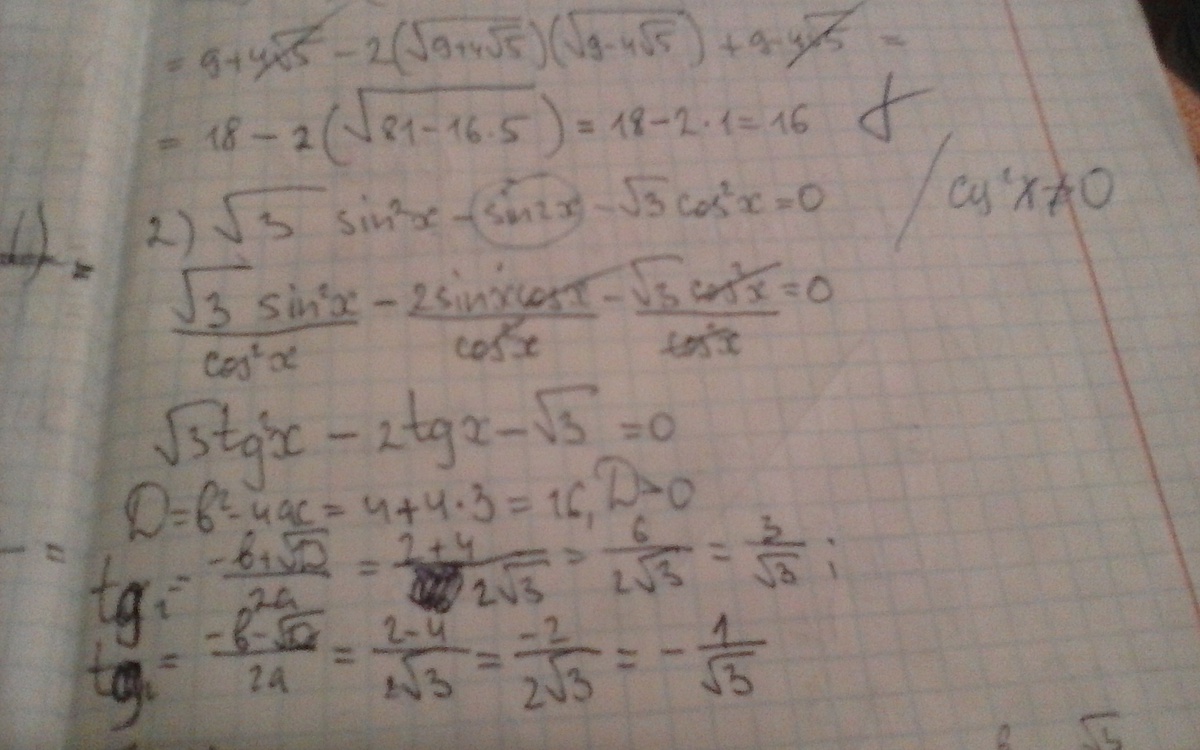 = 9+4√5 - 2(√9+4√5)(√9-4√5) + 9-4√5 =
= 18 - 2(√81-16·5) = 18-2·1=16
2) √3 sin²x - sin2x - √3 cos²x = 0 / cos²x ≠ 0
√3 sin²x/cos²x - 2sinxcosx/cos²x - √3 cos²x/cos²x = 0
√3 tg²x - 2tgx - √3 = 0
D=b²-4ac = 4+4·3 = 16, D>0
tg₁ = -b+√D/2a = 2+4/2√3 = 6/2√3 = 3/√3 ;
tg₂ = -b-√D/2a = 2-4/2√3 = -2/2√3 = -1/√3